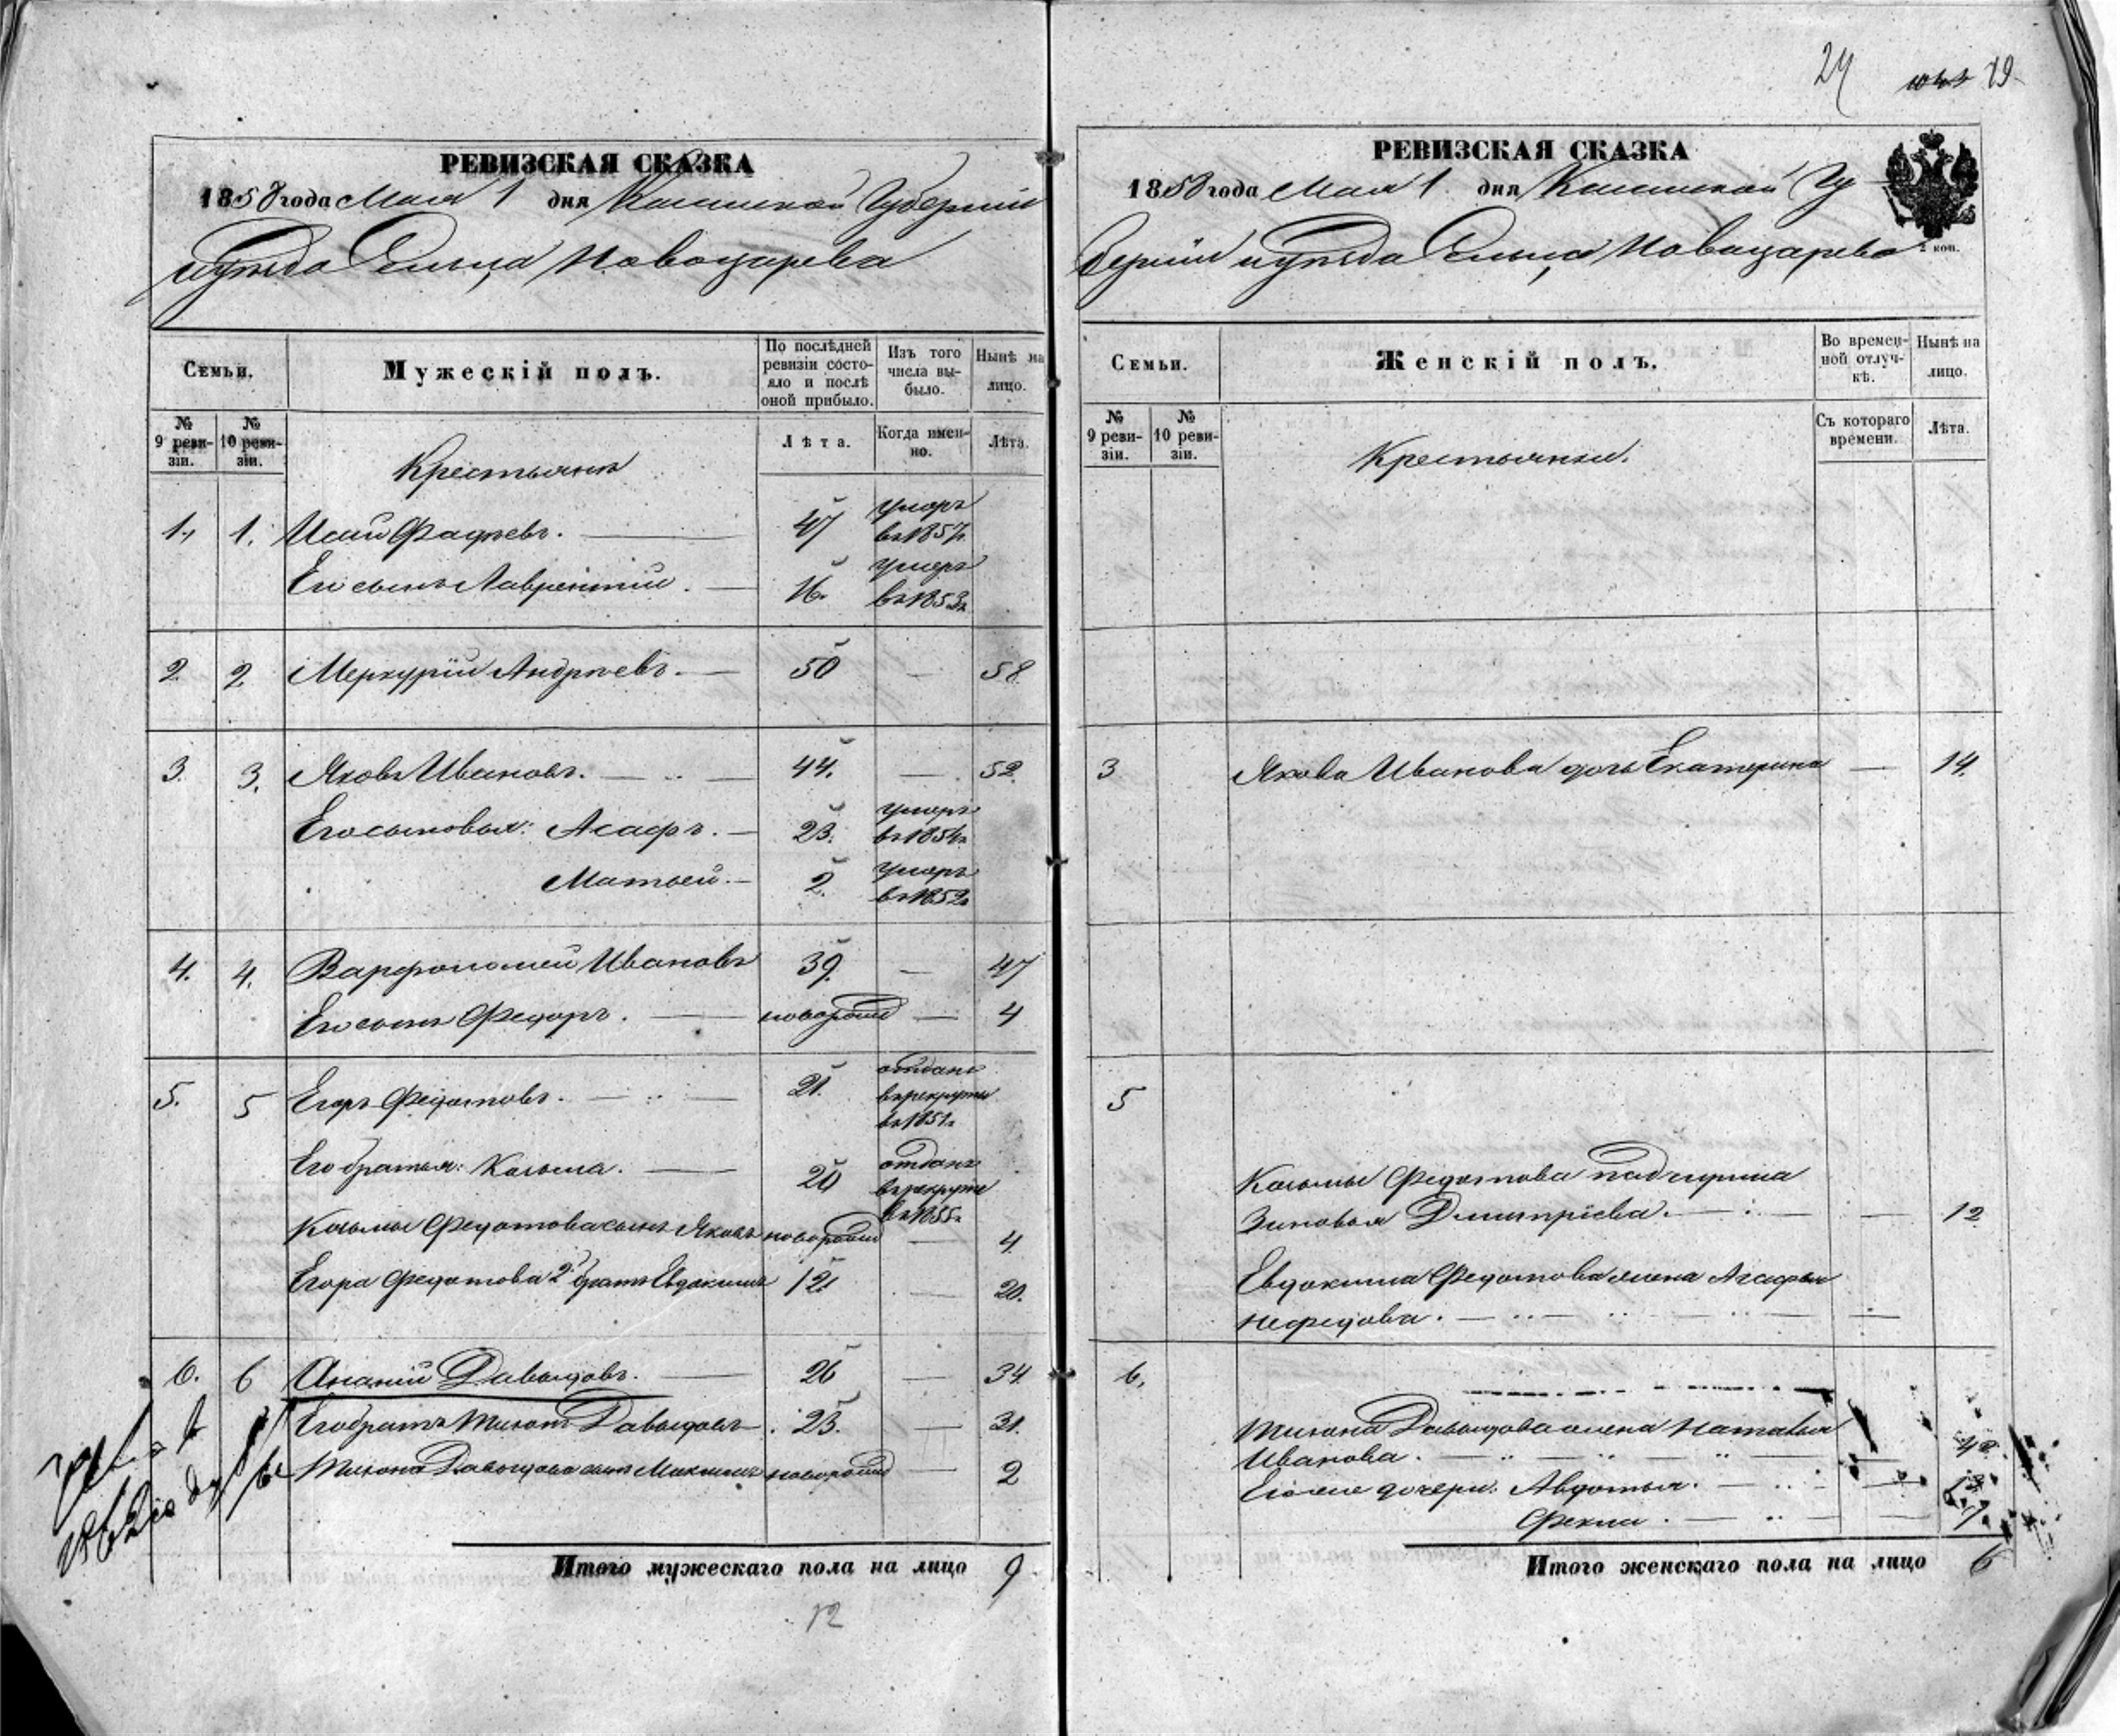 РЕВИЗСКАЯ СКАЗКА
1858 года Мая 1 дня Казанской Губернии
и уѣзда Сельца Новоцарева
Семьи.
Мужескій полъ.
По послѣдней ревизіи состояло и послѣ оной прибыло.
Изъ того числа выбыло.
Нынѣ на лицо.
№ 9 ревизіи.
№ 10 ревизіи.
Лѣта.
Когда именно.
Лѣта.
Крестьяне
1. 1. Исай Фадѣевъ. 47 умеръ въ 1857г.
Его сынъ Лаврентій. 16. умеръ въ 1853г.
2. 2. Меркурій Андрѣевъ. 50 58
3. 3. Яковъ Ивановъ. 44. 52.
Его сыновья: Асафъ. 23. умеръ въ 1854г.
Матвей. 2. умеръ въ 1852г.
4. 4. Варфоломей Ивановъ 39. 47
Его сынъ Федоръ. новорожд 4
5. 5 Егоръ Федотовъ. 21. отданъ в рекруты въ 1851г.
Его братья: Козьма. 20 отданъ в рекруты въ 1855г.
Козьмы Федотова сынъ Яковъ новорожд 4
Егора Федотова 2й братъ Евдокимъ 12 20.
6. 6 Ананій Давыдовъ. 26 34
Его братъ Тихонъ Давыдовъ 23. 31.
Тихона Давыдова сынъ Максимъ новорожд 2
Итого мужескаго пола на лицо 9
12
24 19
РЕВИЗСКАЯ СКАЗКА
1858 года Мая 1 дня Казанской Гу
берніи и уѣзда Сельца Новоцарева
2 коп.
Семьи.
Женскій полъ.
Во временной отлучкѣ.
Нынѣ на лицо.
№ 9 ревизіи.
№ 10 ревизіи.
Съ котораго времени.
Лѣта.
Крестьянки.
3 Якова Иванова дочь Екатерина 14.
5
Козьмы Федотова падчерица
Зиновья Дмитріева. 12
Евдокима Федотова жена Агафья
Нефедова.
6.
Тихона Давыдова жена Наталья
Иванова.
Его же дочери: Авдотья.
Фекла. 7
Итого женскаго пола на лицо 6